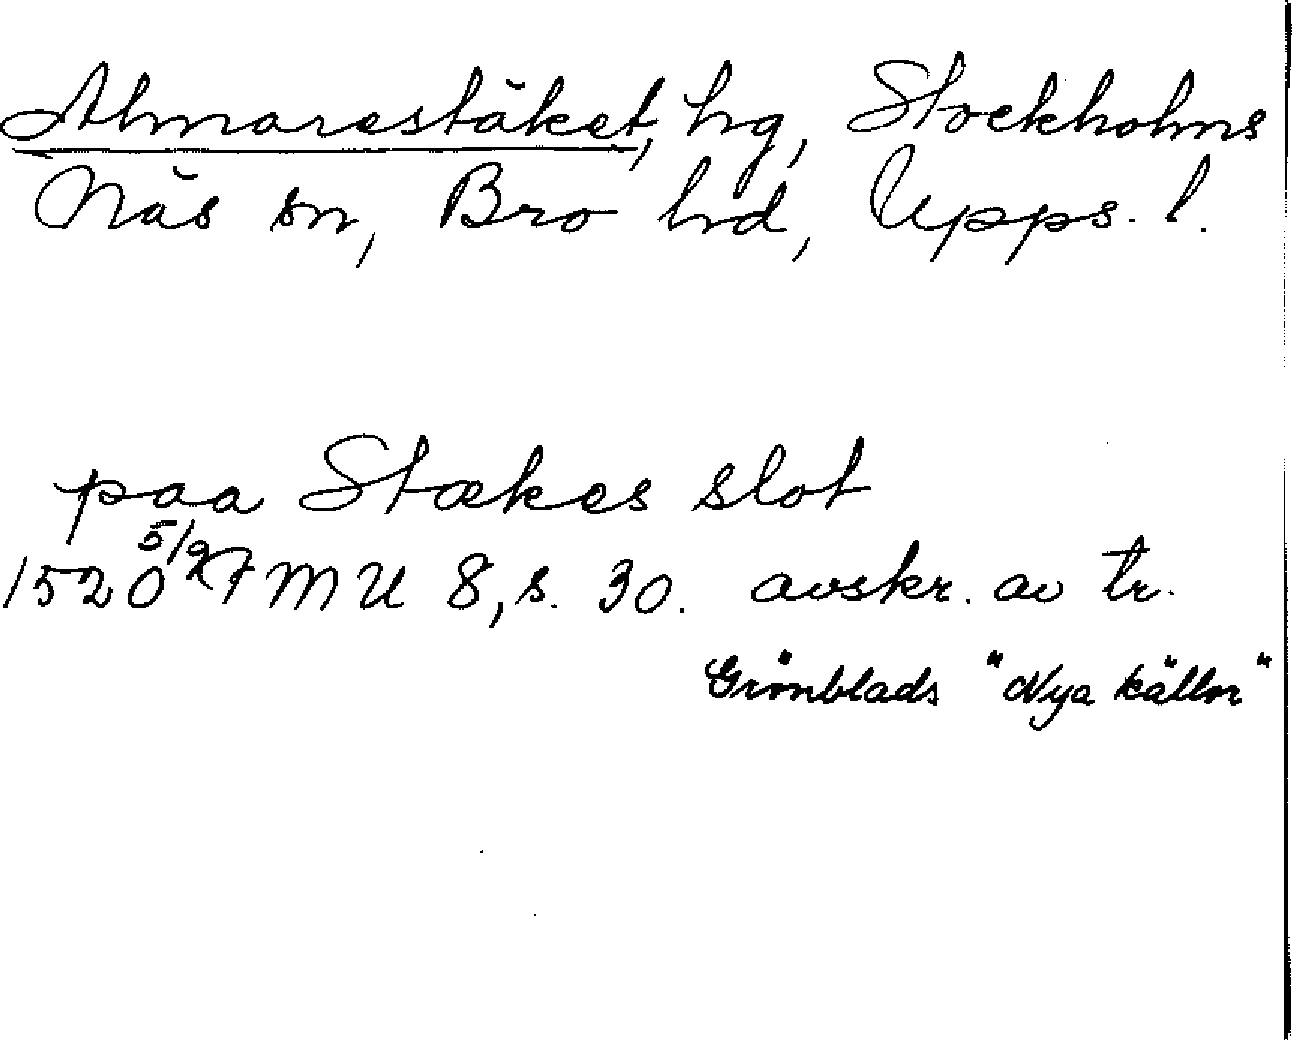 Almarestäket, hg, Stockholms
Näs sn, Bro hd, Upps. l.
paa Stækes slot
1520 5/9 FMU 8, s. 30. avskr. av tr.
Grönblads "Nya källor"